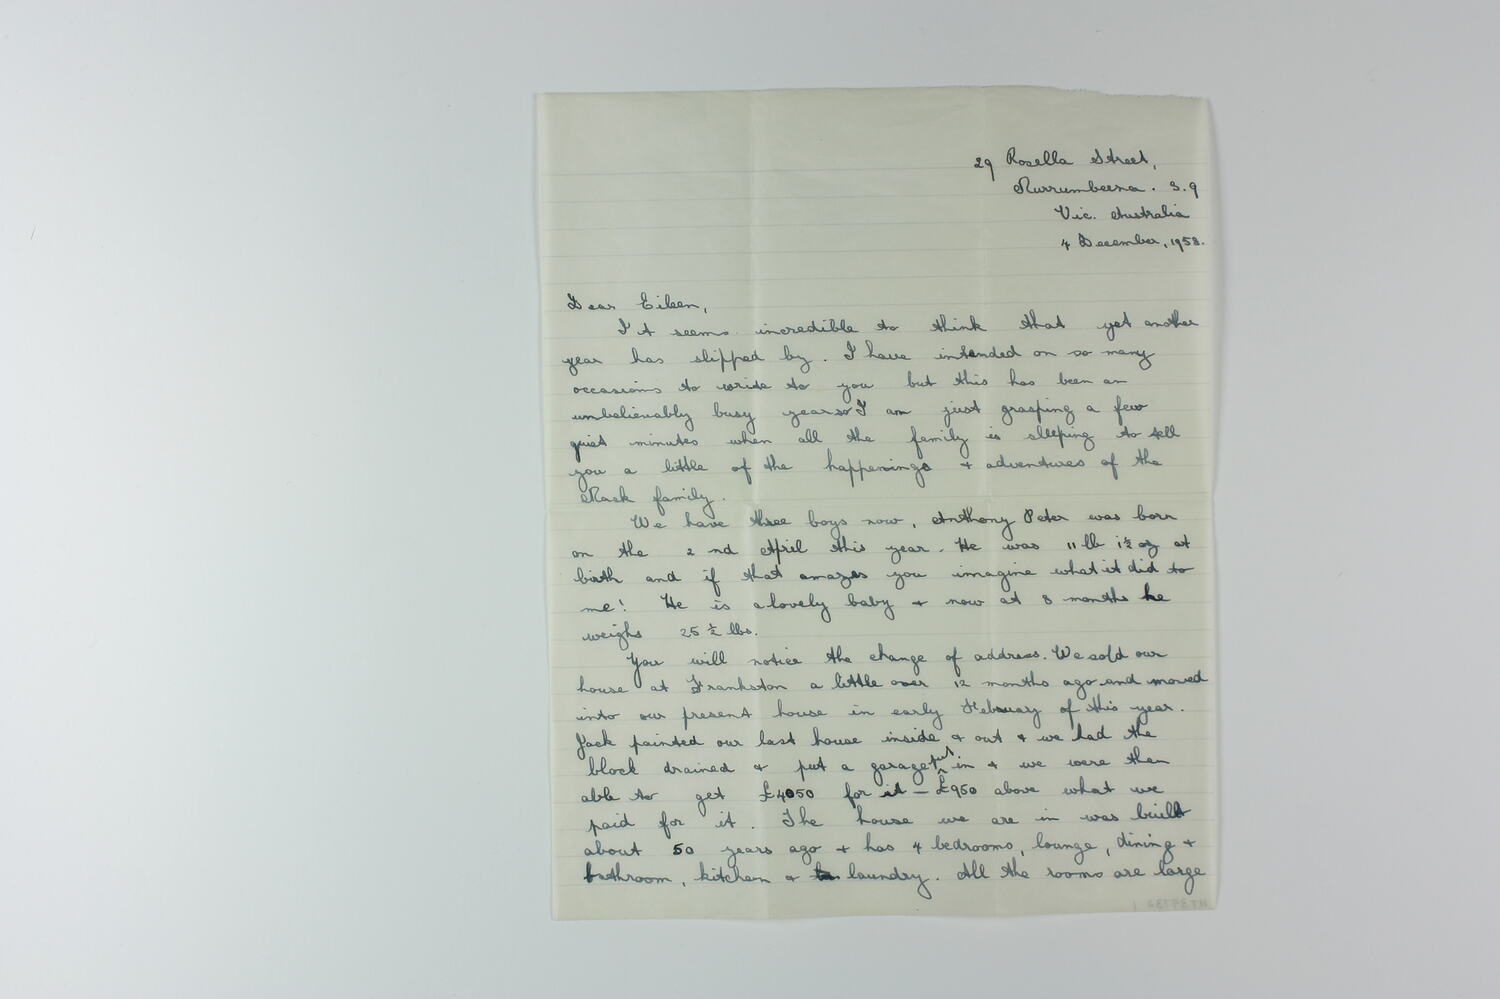 29 Rosella Street,
Murrumbeena. S.9
Vic. Australia
4 December, 1958.
Dear Eileen,
It seems incredible to think that yet another
year has slipped by. I have intended on so many
occasions to write to you but this has been an
unbelievably busy year so I am just grasping a few
quiet minutes when all the family is sleeping to tell
you a little of the happenings & adventures of the
family.
We have three boys now, Anthony Peter was born
on the 2nd April this year. He was 11 lb 1½ oz at
birth and if that amazes you imagine what it did to
me! He is a lovely baby & now at 8 months he
weighs 25 ½ lbs.
You will notice the change of address. We sold our
house at Frankston a little over 12 months ago and moved
into our present house in early February of this year.
Jack painted our last house inside & out & we had the
block drained & put a garage put in & we were then
able to get £4050 for it – £950 above what we
paid for it. The house we are in was built
about 50 years ago & has 4 bedrooms, lounge, dining &
bathroom, kitchen & laundry. All the rooms are large